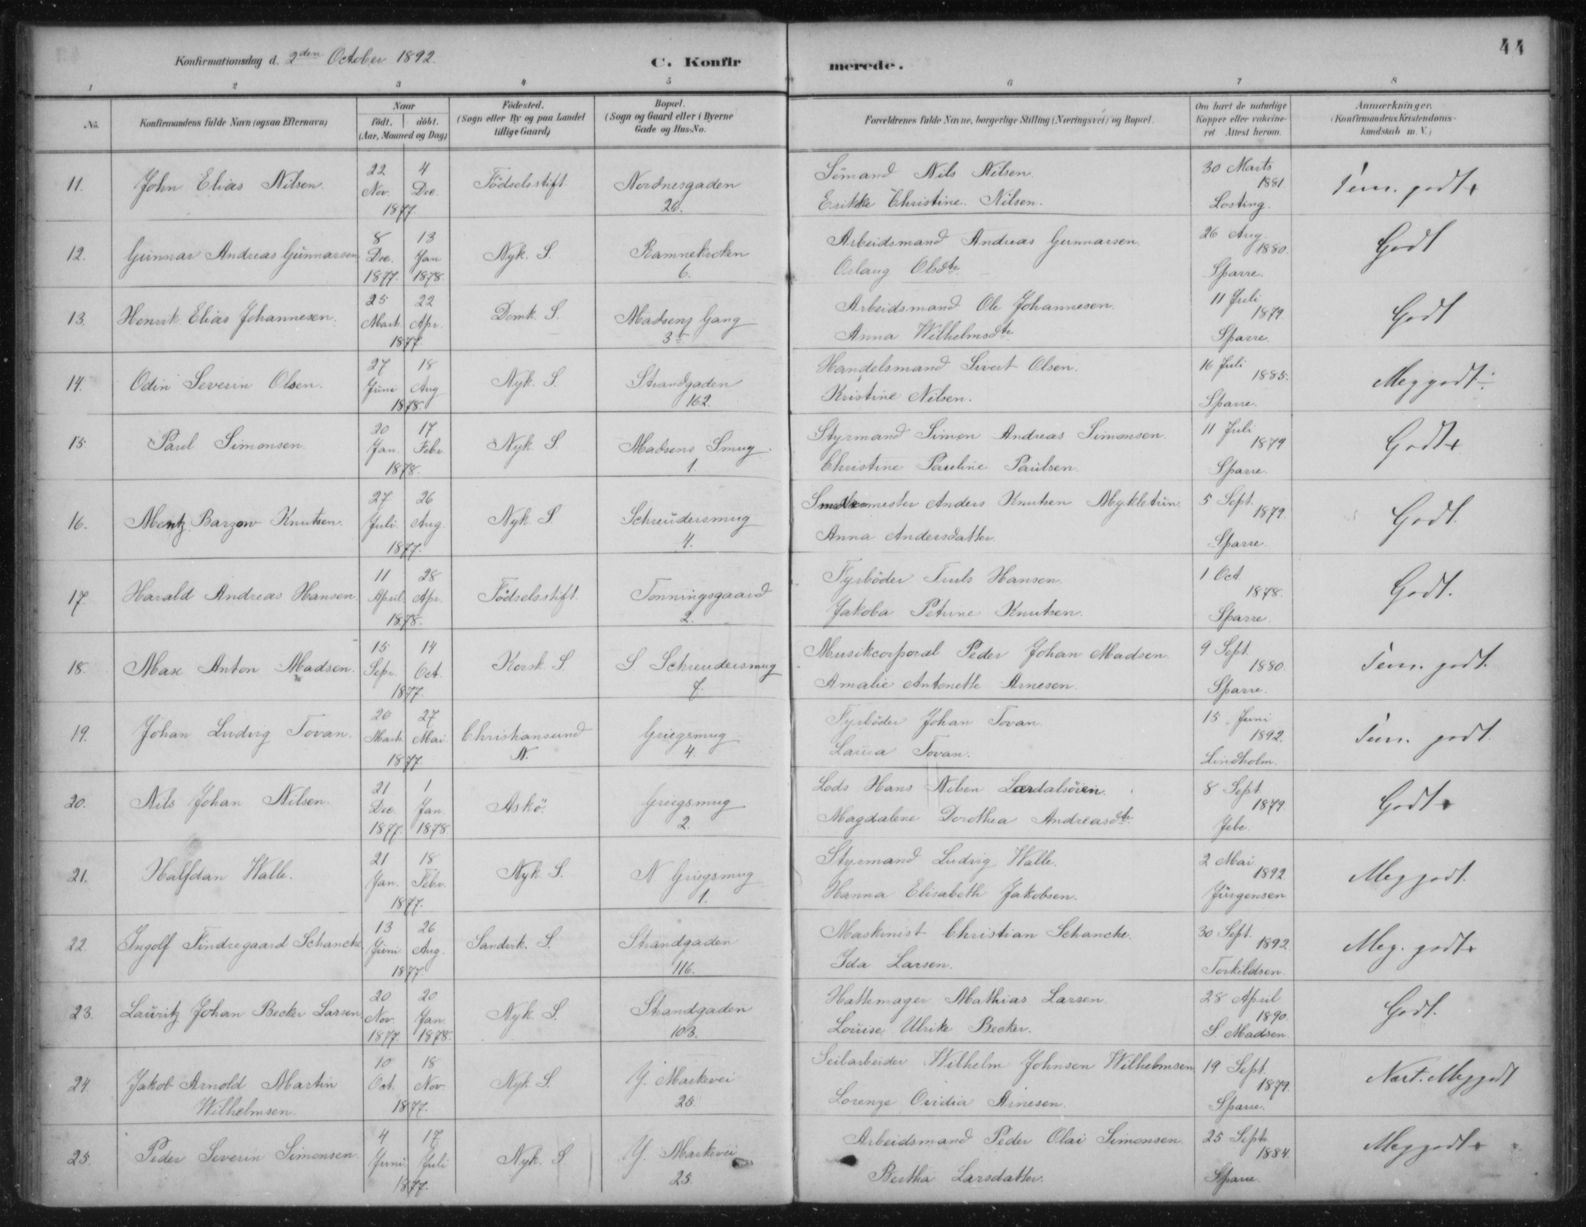 44
Konfirmationsdag d. 2den October 1892.
C. Konfirmerede.
1 2 3 4 5 6 7 8
No. Konfirmandens fulde Navn (ogsaa Efternavn)
Naar født. døbt. (Aar, Maaned og Dag)
Fødested. (Sogn eller By og paa Landet tillige Gaard)
Bopæl. (Sogn og Gaard eller i Byerne Gade og Hus-No.
Forældrenes fulde Navne, borgerlige Stilling (Næringsvei) og Bopæl.
Om havt de naturlige Kopper eller vaccineret. Attest herom.
Anmærkninger. (Konfirmandens Kristendomskundskab m. V.)
11. John Elias Nilsen. 22 Nov. 4 Dec. 1877 Födselsstift Nordnesgaden 20. Sömand Nils Nilsen. Erikke Christine Nilsen. 30 Marts 1881 Losting. Tem. godt+
12. Gunnar Andreas Gunnarsen 8 Dec. 1877 13 Jan 1878 Nyk. S. Ramnekroken 6. Arbeidsmand Andreas Gunnarsen. Oslaug Olsdtr. 26 Aug. 1880. Sparre. Godt
13. Henrik Elias Johannesen. 25 Mart. 22 Apr. 1877 Domk. S. Madsens Gang 3 Arbeidsmand Ole Johannesen. Anna Wilhelmsdtr. 11 Juli 1879. Sparre. Godt
14. Odin Severin Olsen. 27 Juni 18 Aug 1878. Nyk. S. Strandgaden 162 Handelsmand Sivert Olsen. Kristine Nilsen. 16 Juli 1885. Sparre. Meg godt÷
15 Paul Simonsen. 20 Jan. 17 Febr. 1878. Nyk. S. Madsens Smug. 1 Styrmand Simon Andreas Simonsen. Christine Pauline Paulsen. 11 Juli 1879 Sparre. Godt+
16. Mentz Barzon Knutsen. 27 Juli 26 Aug. 1877. Nyk S Schreudersmug 4. Anders Knutsen Mykletun. Anna Andersdatter. 5 Sept. 1879. Sparre. Godt.
17. Harald Andreas Hansen 11 April 28 Apr. 1878. Födselsstift. Tonningsgaard 2. Fyrböder Truls Hansen. Jakoba Petrine Knutsen. 1 Oct. 1878. Sparre. Godt.
18. Max Anton Madsen. 15 Sepr. 14 Oct. 1877. Korsk. S S Schreudersmug 7. Musikcorporal Peder Johan Madsen. Amalie Antonette Arnesen. 9 Sept. 1880. Sparre. Tem. godt.
19. Johan Ludvig Tovan. 20 Mart. 27 Mai 1877 Christiansund N. Griegsmug 4. Fyrböder Johan Tovan. Larisa Tovan. 15 Juni 1892. Lindholm. Tem. godt.
20. Nils Johan Nilsen. 21 Dec. 1877. 1 Jan. 1878 Askö. Griegsmug 2. Lods Hans Nilsen Lærdalsören. Magdalene Dorothea Andreasdtr. 8 Sept. 1879. Jebe. Godt+
21. Halfdan Walle. 21 Jan. 18 Febr. 1877. Nyk S. N Griegsmug 1. Styrmand Ludvig Walle. Hanna Elisabeth Jakobsen. 2 Mai 1892 Jürgensen Meg godt.
22. Ingolf Findregaard Schancke 13 Juni 26 Aug. 1877. Sandvk. S. Strandgaden 116. Maskinist Christian Schancke. Ida Larsen. 30 Sept. 1892. Torkildsen. Meg. godt+
23. Lauritz Johan Becker Larsen 20 Nov. 1877 20 Jan. 1878. Nyk. S. Strandgaden 103. Hattemager Mathias Larsen. Louise Ulrike Becker. 28 April 1890. S. Madsen. Godt.
24 Jakob Arnold Martin Wilhelmsen. 10 Oct. 18 Nov. 1877. Nyk S. Y. Markevei 25. Seilarbeider Wilhelm Johnsen Wilhelmsen Lorenze Ovidia Arnesen. 19 Sept. 1879. Sparre. Næst. Meg godt
25 Peder Severin Simonsen. 4 Juni 17 Juli 1877. Nyk. S Y. Markevei 25 Arbeidsmand Peder Olai Simonsen Bertha Larsdatter. 25 Sept. 1884. Sparre. Meg godt+